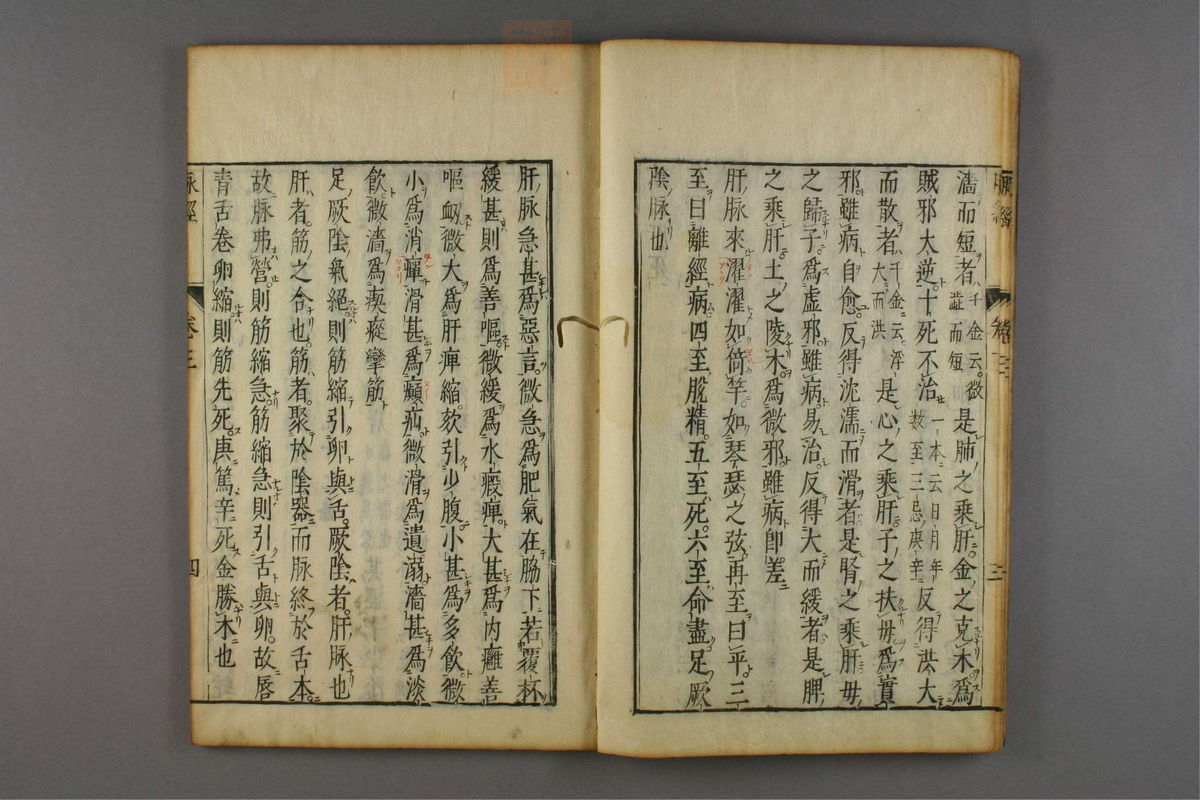 濇而短者千金云微濇而短是肺之乘肝金之克木爲
賊邪大逆十死不治一本云日月年數至三忌庚辛反得洪大
而散者千金云浮大而洪是心之乘肝子之扶母爲實
邪雖病自愈反得沈濡而滑者是腎之乘肝母
之歸子爲虛邪雖病易治反得大而緩者是脾
之乘肝土之陵木爲微邪雖病卽差
肝脈來濯濯如倚竿如琴瑟之弦再至曰平三
至曰離經病四至脫精五至死六至命盡足厥
陰脈也
肝脈急甚爲惡言微急爲肥氣在脇下若覆杯
緩甚則爲善嘔微緩爲水瘕痺大甚爲内癰善
嘔衂微大爲肝痺縮欬引少腹小甚爲多飲微
小爲消癉滑甚爲㿗疝微滑爲遺溺濇甚爲淡
飲微濇爲瘈瘲攣筋
足厥陰氣絕則筋縮引卵與舌厥陰者肝脈也
肝者筋之合也筋者聚於陰器而脈終於舌本
故脈弗營則筋縮急筋縮急則引舌與卵故唇
青舌卷卵縮則筋先死庚篤辛死金勝木也
脉經 卷三 四